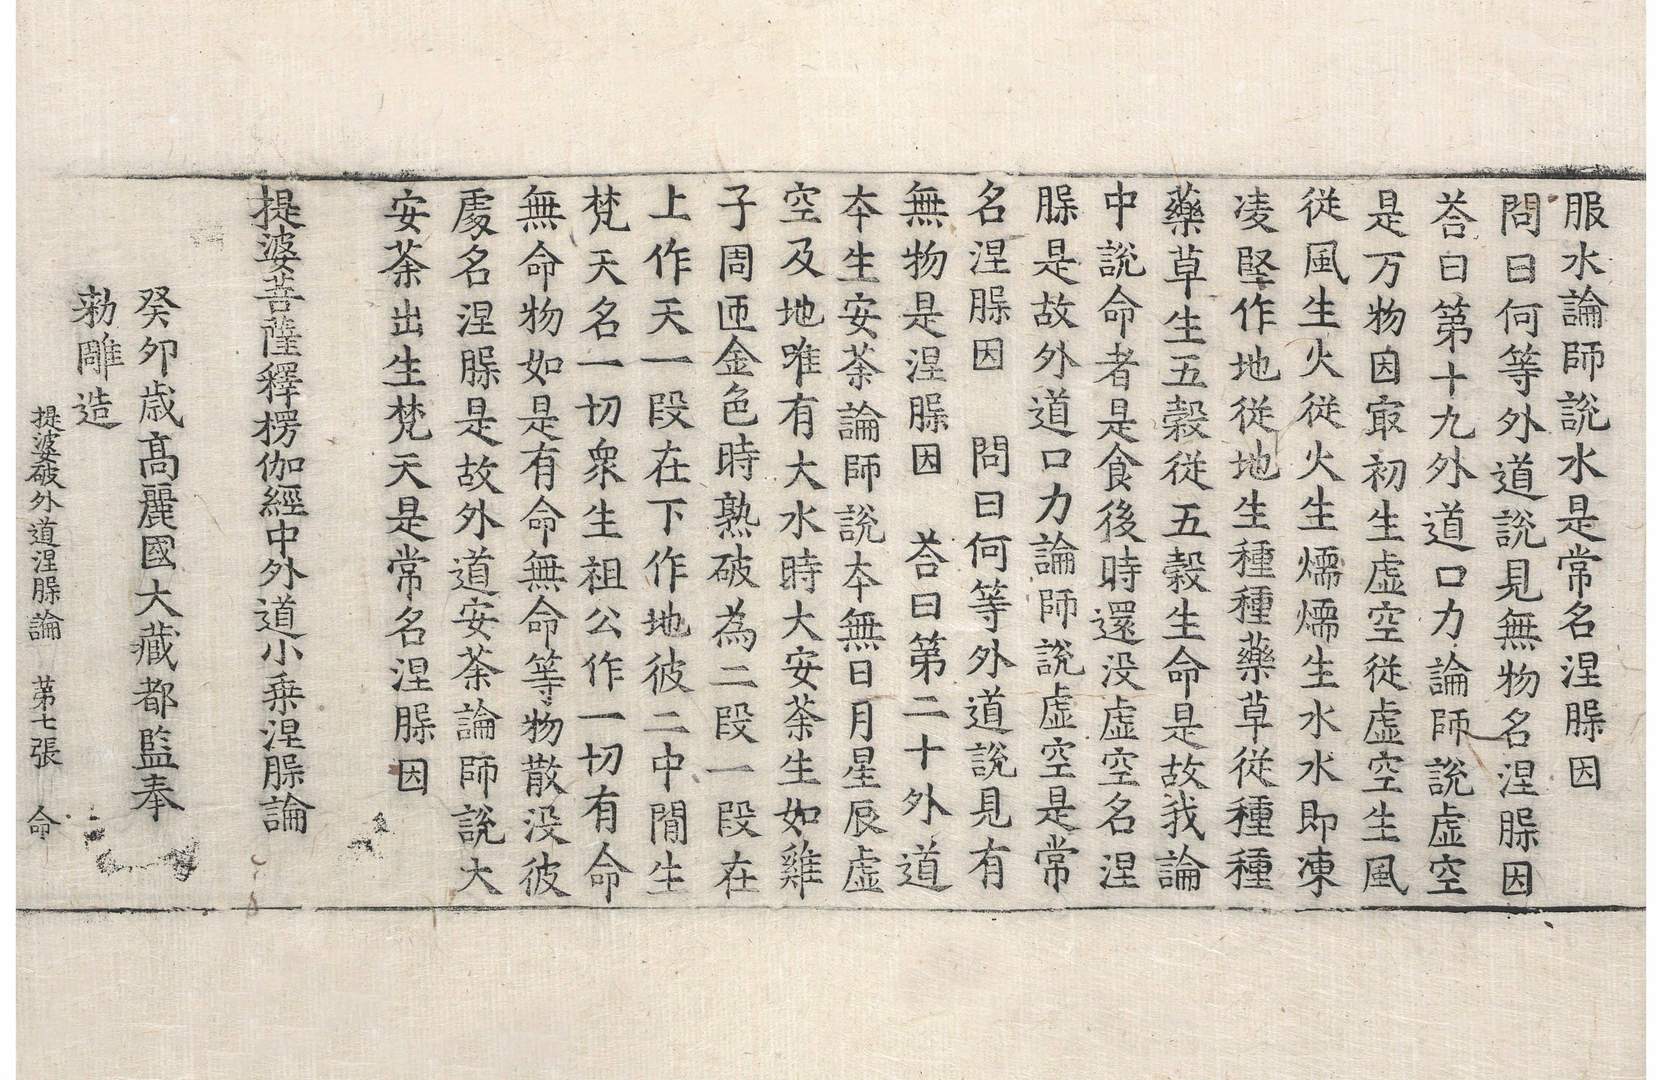 服水論師說水是常名涅槃因
問曰何等外道說見無物名涅槃因
荅曰第十九外道口力論師說虛空
是万物因冣初生虛空從虛空生風
從風生火從火生煗煗生水水即凍
凌堅作地從地生種種藥草從種種
藥草生五穀從五穀生命是故我論
中說命者是食後時還没虛空名涅
槃是故外道口力論師說虛空是常
名涅槃因 問曰何等外道說見有
無物是涅槃因 荅曰第二十外道
夲生安荼論師說夲無日月星辰虛
空及地唯有大水時大安荼生如雞
子周匝金色時熟破為二段一段在
上作天一段在下作地彼二中閒生
梵天名一切衆生祖公作一切有命
無命物如是有命無命等物散没彼
處名涅槃是故外道安荼論師說大
安荼出生梵天是常名涅槃因
提婆菩薩釋楞伽經中外道小乗涅槃論
癸卯歳髙麗國大藏都監奉
勑雕造
提婆破外道涅槃論 第七張 命